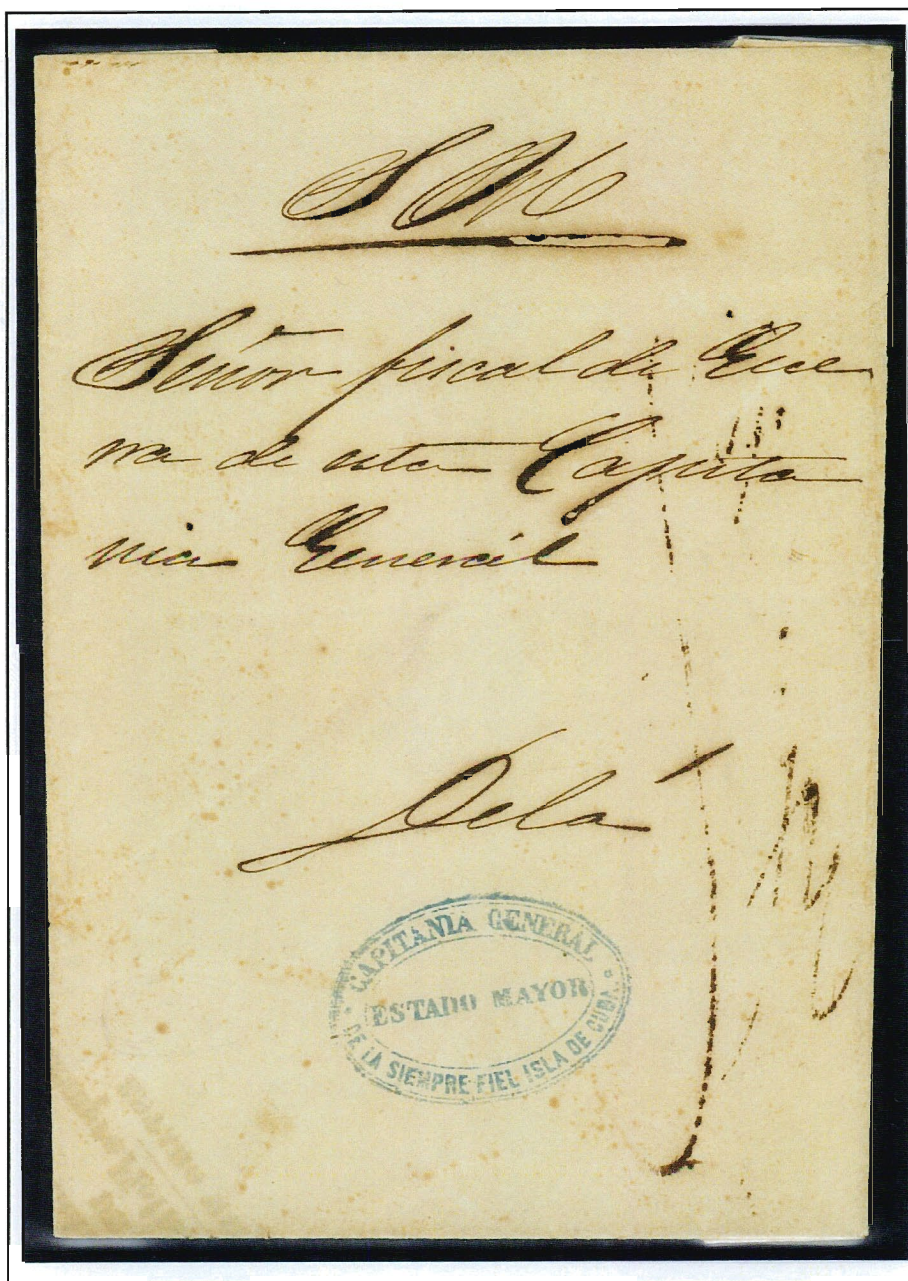 S N
Señor fiscal de Gue
rra de esta Capita
nia General
Del
CAPITANIA GENERAL
ESTADO MAYOR
DE LA SIEMPRE FIEL ISLA DE CUBA